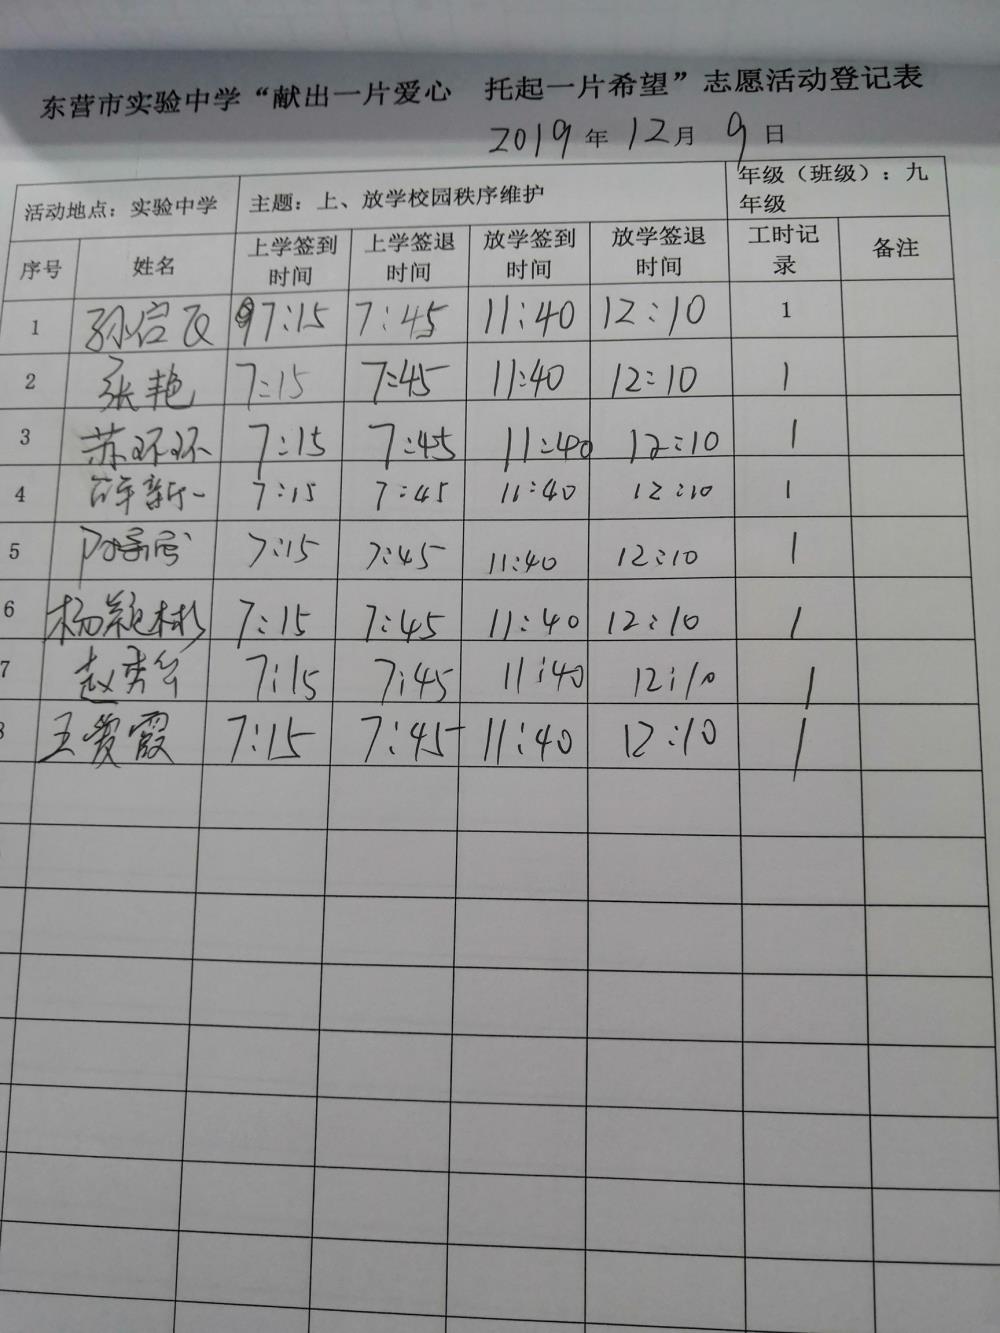 东营市实验中学“献出一片爱心 托起一片希望”志愿活动登记表
2019年12月9日
活动地点：实验中学 主题：上、放学校园秩序维护 年级（班级）：九年级
序号 姓名 上学签到时间 上学签退时间 放学签到时间 放学签退时间 工时记录 备注
1 7:15 7:45 11:40 12:10 1
2 张艳 7:15 7:45 11:40 12:10 1
3 苏环环 7:15 7:45 11:40 12:10 1
4 7:15 7:45 11:40 12:10 1
5 7:15 7:45 11:40 12:10 1
6 杨颖彬 7:15 7:45 11:40 12:10 1
7 7:15 7:45 11:40 12:10 1
王爱霞 7:15 7:45 11:40 12:10 1